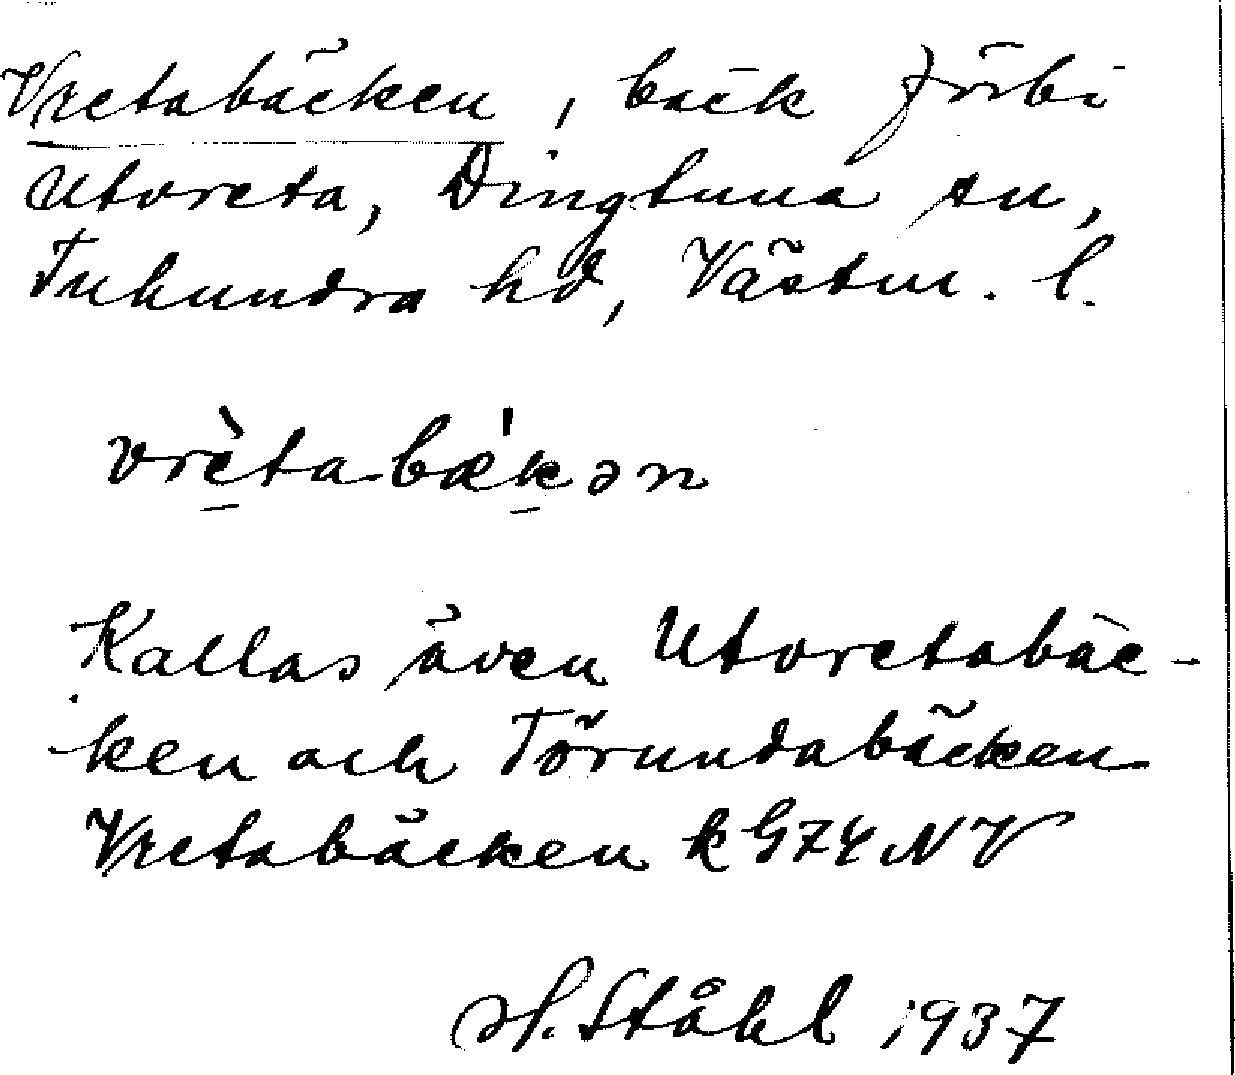 Vretabäcken, bäck förbi
Utvreta, Dingtuna sn,
Tuhundra hd, Västm. l.
vrètabæ̀kən
Kallas även Utvretabäc-
ken och Törundabäcken
Vretabäcken k G74 NV
H. Ståhl 1937